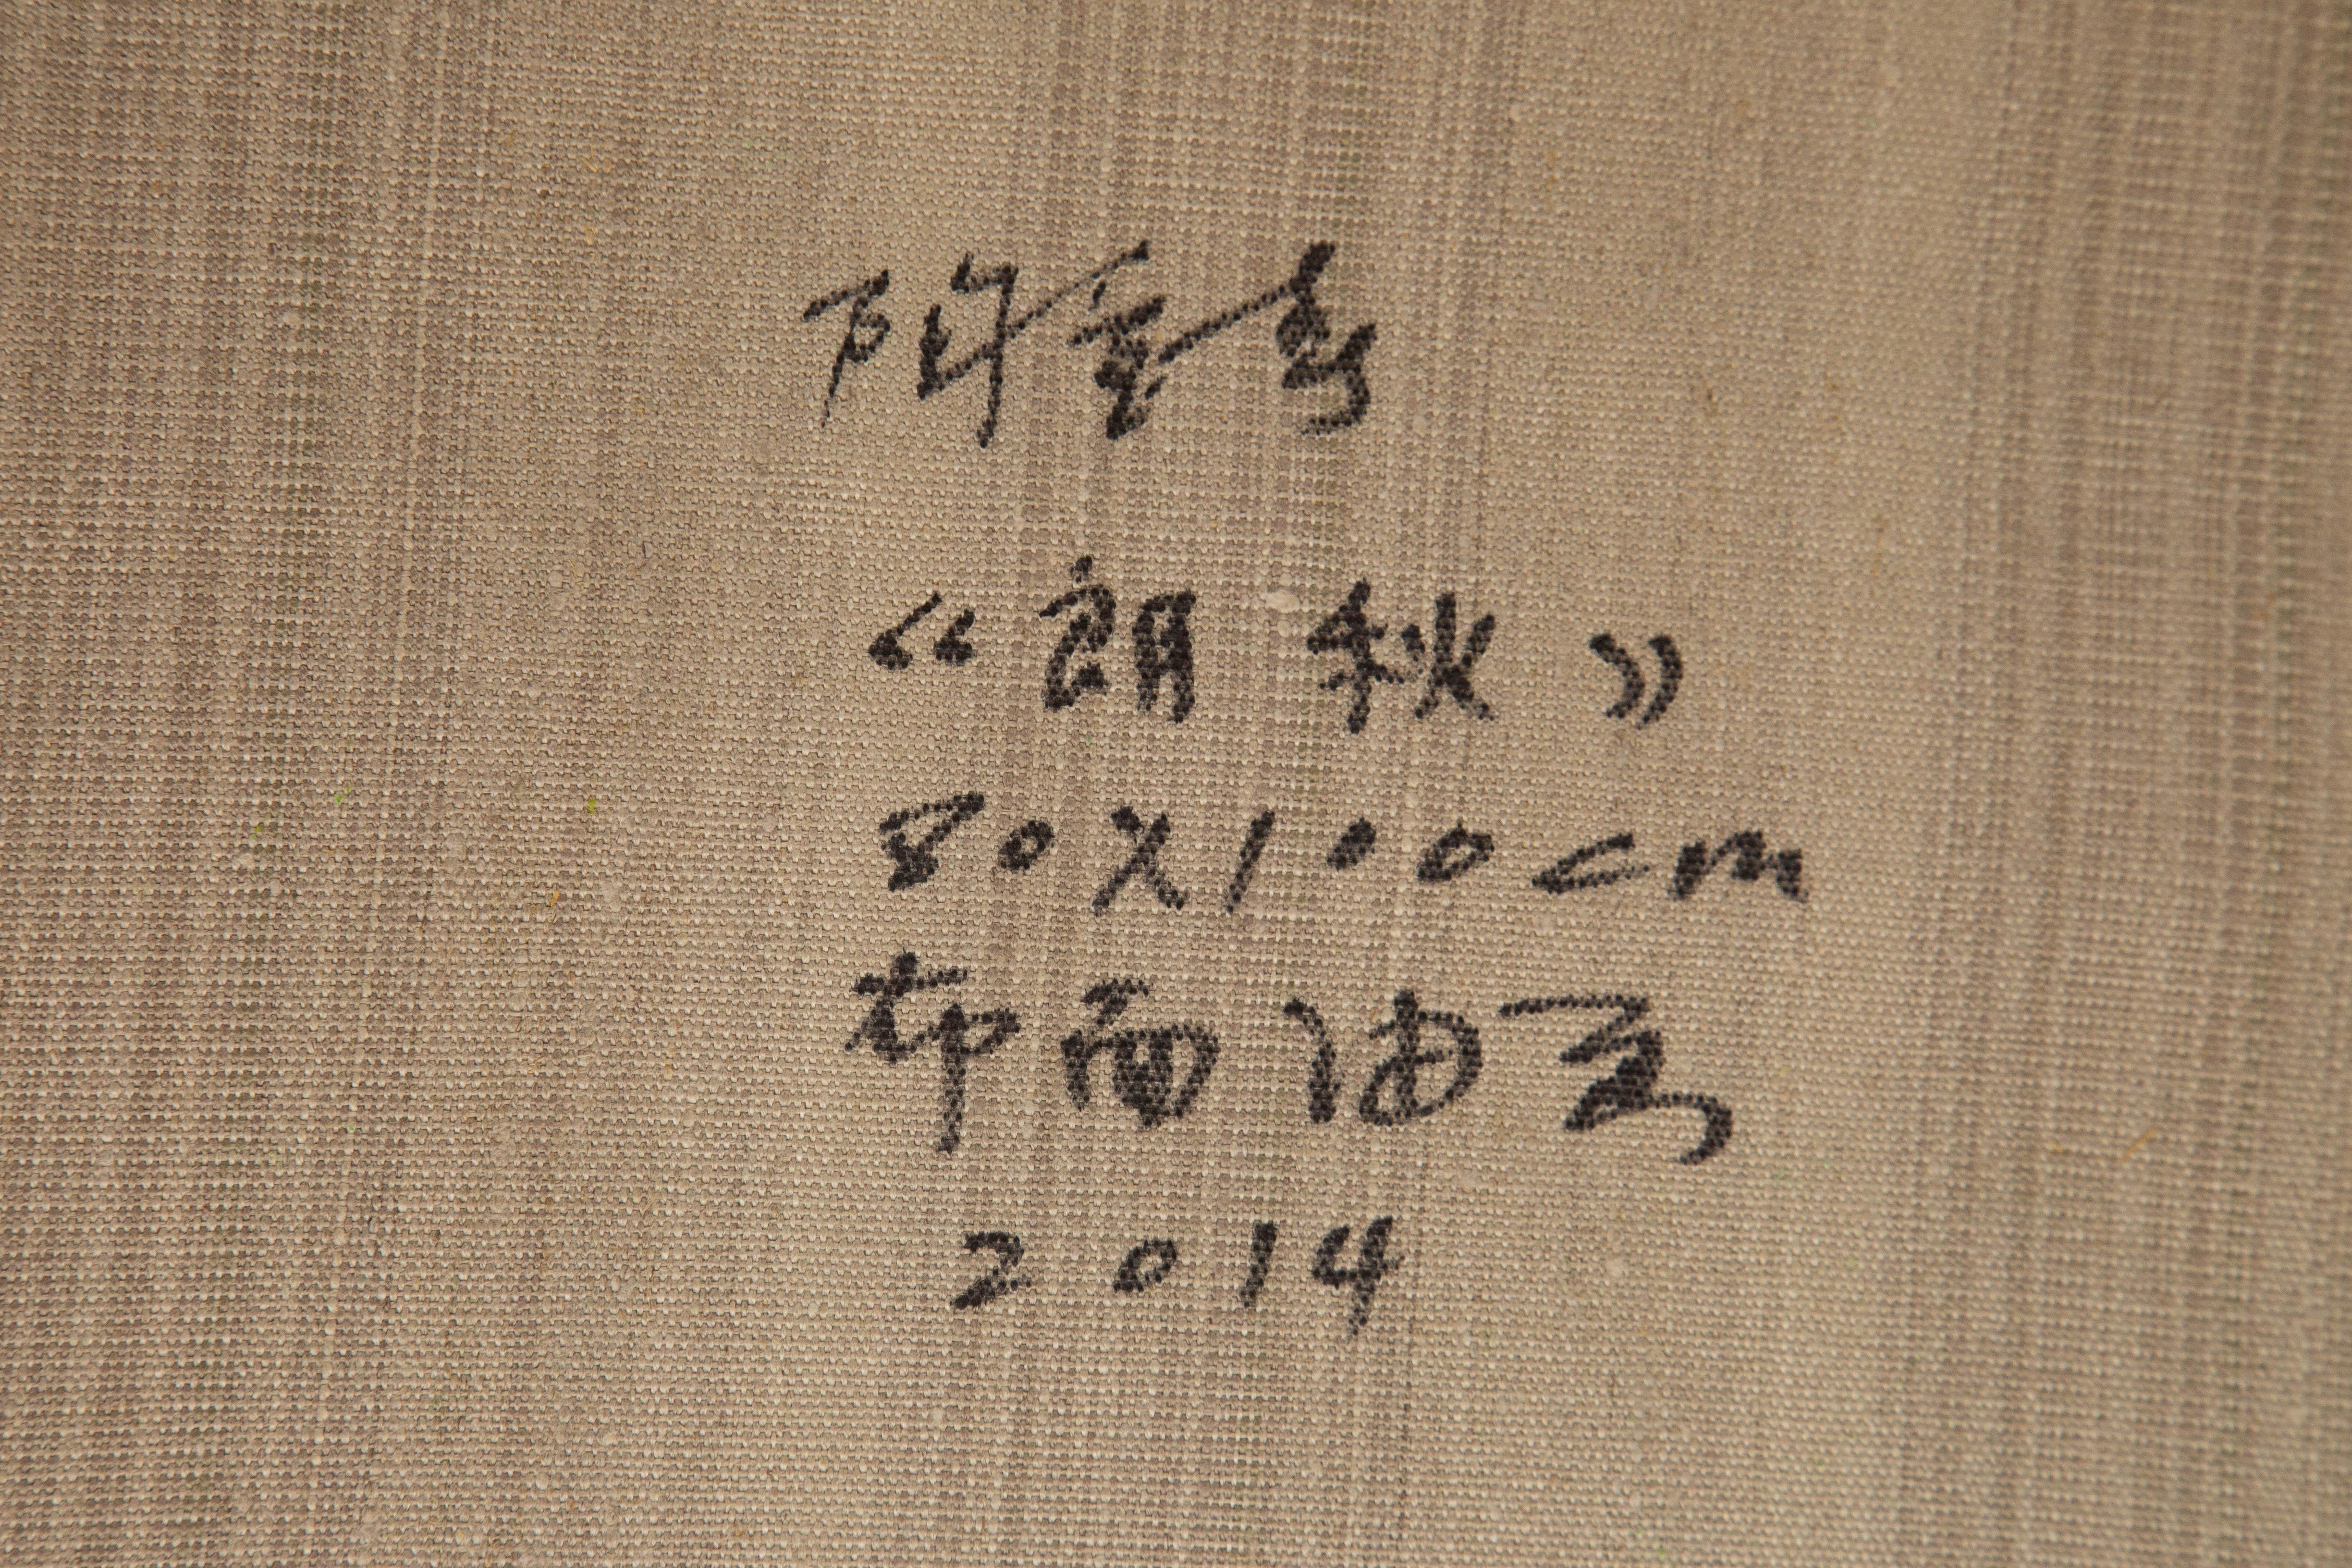 《朗秋》
80X100cm
布面油画
2014